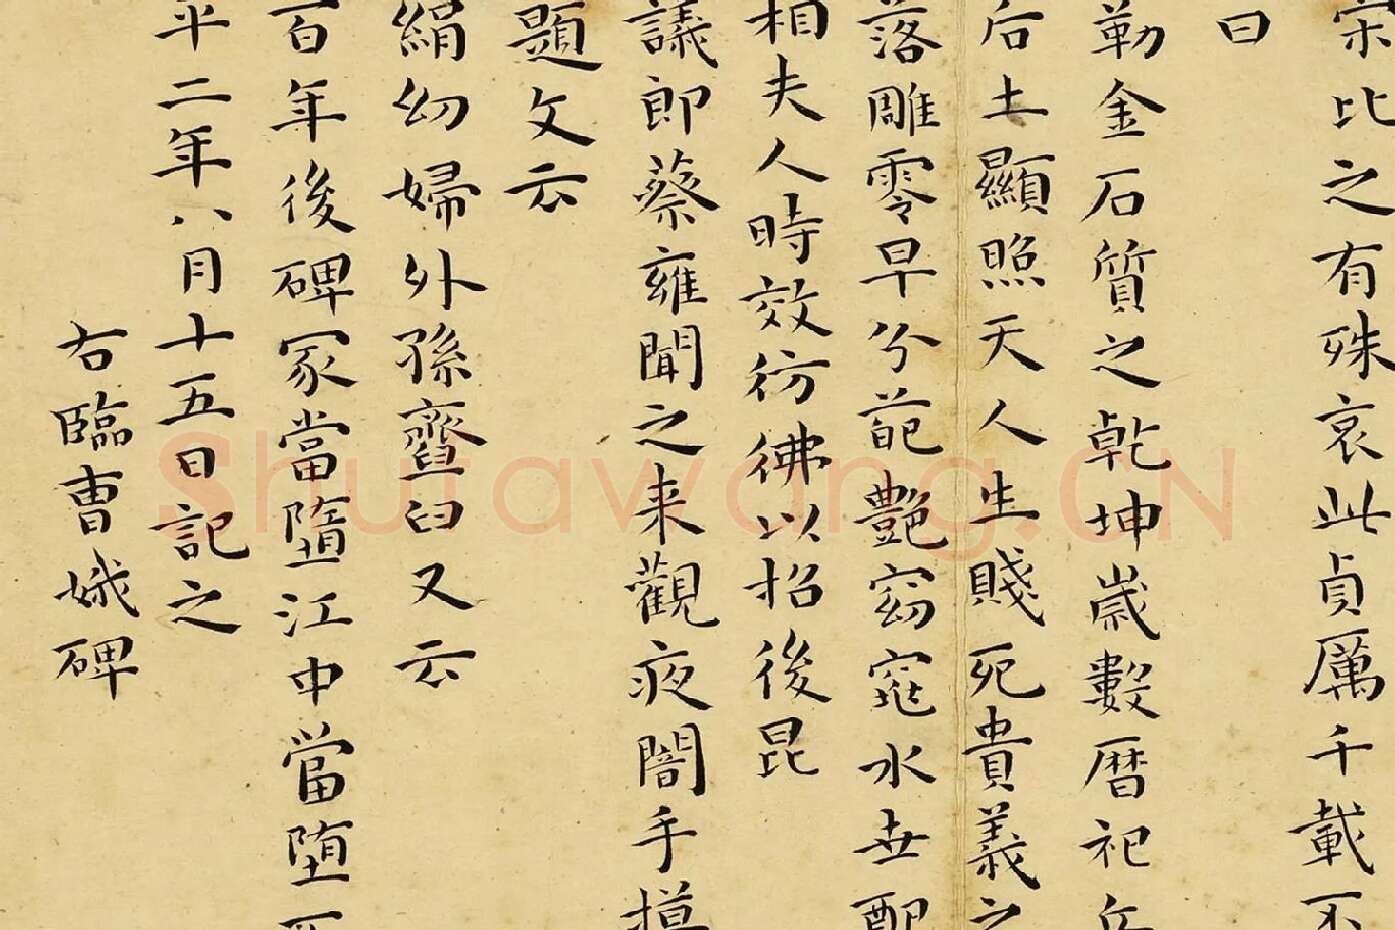 宗比之有殊哀此貞厲千載不
曰
勒金石質之乾坤歲數曆祀丘
后土顯照天人生賤死貴義之
落雕零早分葩艷窈窕水世配
相夫人時效彷彿以招後昆
議郎蔡雍聞之来觀夜闇手摸
題文云
絹幼婦外孫齏臼又云
百年後碑冢當墮江中當墮不
平二年八月十五日記之
右臨曹娥碑
Shufawang.CN